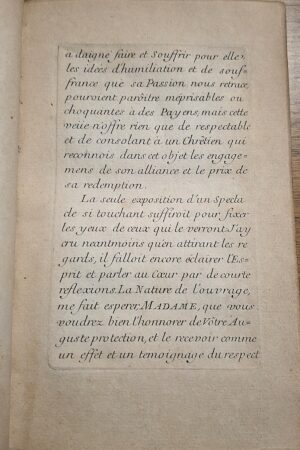 a daigné faire et Souffrir pour elle,
les idées d'humiliation et de souf=
france que sa Passion nous retrace,
pouroient parêitre méprisables ou
choquantes à des Payens, mais cette
veüe n'offre rien que de respectable
et de consolant à un Chrétien qui
reconnois dans cet objet les engage=
mens de son alliance et le prix de
sa redemption.
La seule exposition d'un Specta
cle si touchant suffiroit pour fixer
les yeux de ceux qui le verront J'ay
cru neantmoins qu'en attirant les re
gards, il falloit encore éclairer l'Es=
prit et parler au Cœur par de courte
reflexions. La Nature de l'ouvrage,
me fait esperer, MADAME, que vous
voudrez bien l'honnorer de Vôtre Au=
guste protection, et le recevoir comme
un effèt et un temoignage du respect